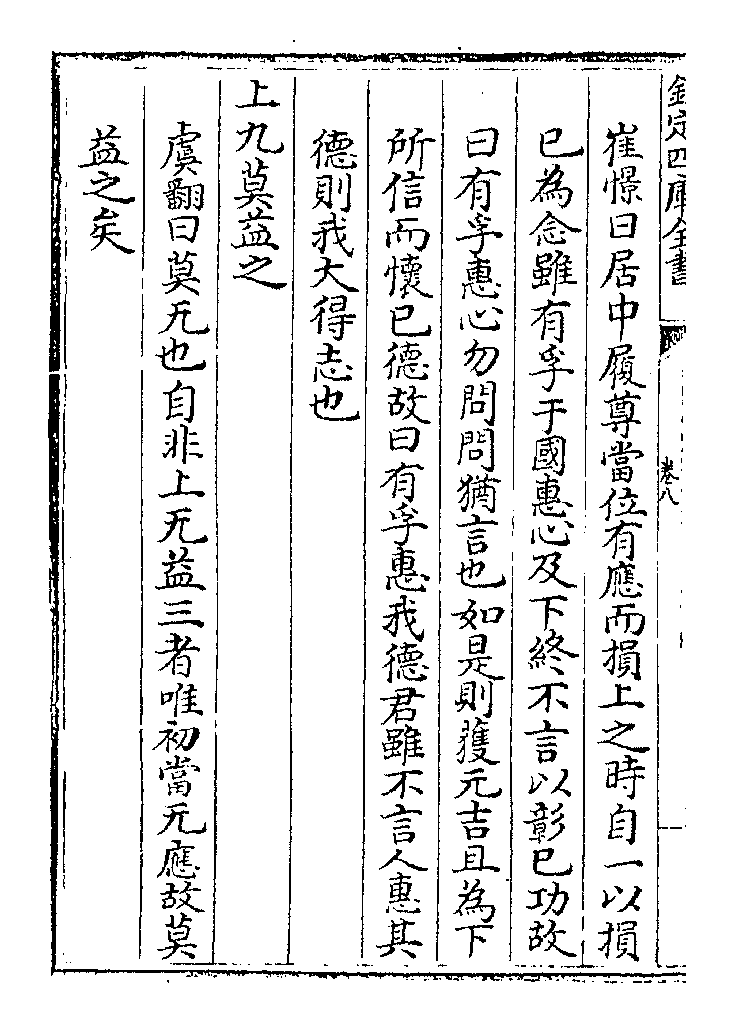 欽定四庫全書
卷八
崔憬曰居中履尊當位有應而損上之時自一以損
已為念雖有孚于國惠心及下終不言以彰已功故
曰有孚惠心勿問問猶言也如是則獲元吉且為下
所信而懷已德故曰有孚惠我德君雖不言人惠其
德則我大得志也
上九莫益之
虞翻曰莫无也自非上无益三者唯初當无應故莫
益之矣